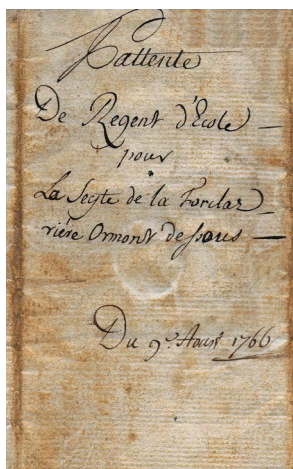 Pattente
De Regent d'Ecole —
pour
La Secte de la Forclaz
rière Ormont dessous —
Du 9e. Aoust 1766